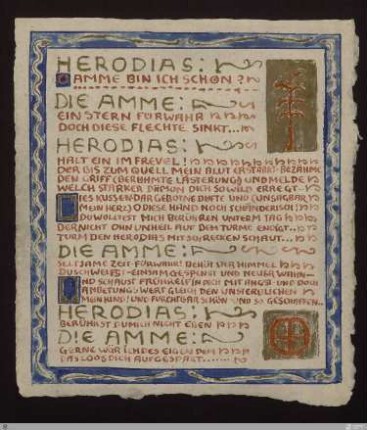 HERODIAS:
AMME BIN ICH SCHÖN?
DIE AMME:
EIN STERN FÜRWAHR
DOCH DIESE FLECHTE SINKT...
HERODIAS:
HALT EIN IM FREVEL!
DER BIS ZUM QUELL MEIN BLUT ERSTARRT BEZÄHME
DEN GRIFF (BERÜHMTE LÄSTERUNG) UND MELDE
WELCH STARKER DÄMON DICH SO WILD ERREGT
DIES KUSSENDARGEBOTNE DÜFTE UND (UNSAGBAR
MEIN HERZ) O DIESE HAND NOCH SCHÄNDERISCH
DU WOLLTEST MICH BERÜHREN UNTERM TAG
DER NICHT OHN UNHEIL AUF DEM TURME ENDIGT...
TURM DEN HERODIAS MIT SCHRECKEN SCHAUT...
DIE AMME:
SELTSAME ZEIT FÜRWAHR! DER HIMMEL
DU SCHWEIFST EINSAM GESPENST UND NEUER WAHN
UND SCHAUST FRÜHREIF IN DICH MIT ANGST UND DOCH
ANBETUNG WERT GLEICH DEN UNSTERBLICHEN
MEIN KIND! UND FURCHTBAR SCHÖN UND SO GESCHAFFEN...
HERODIAS:
BERÜHRST DU MICH NICHT EBEN
DIE AMME:
GERNE WÄR ICH DES EIGEN DEM
DAS LOOS DICH AUFGESPART......